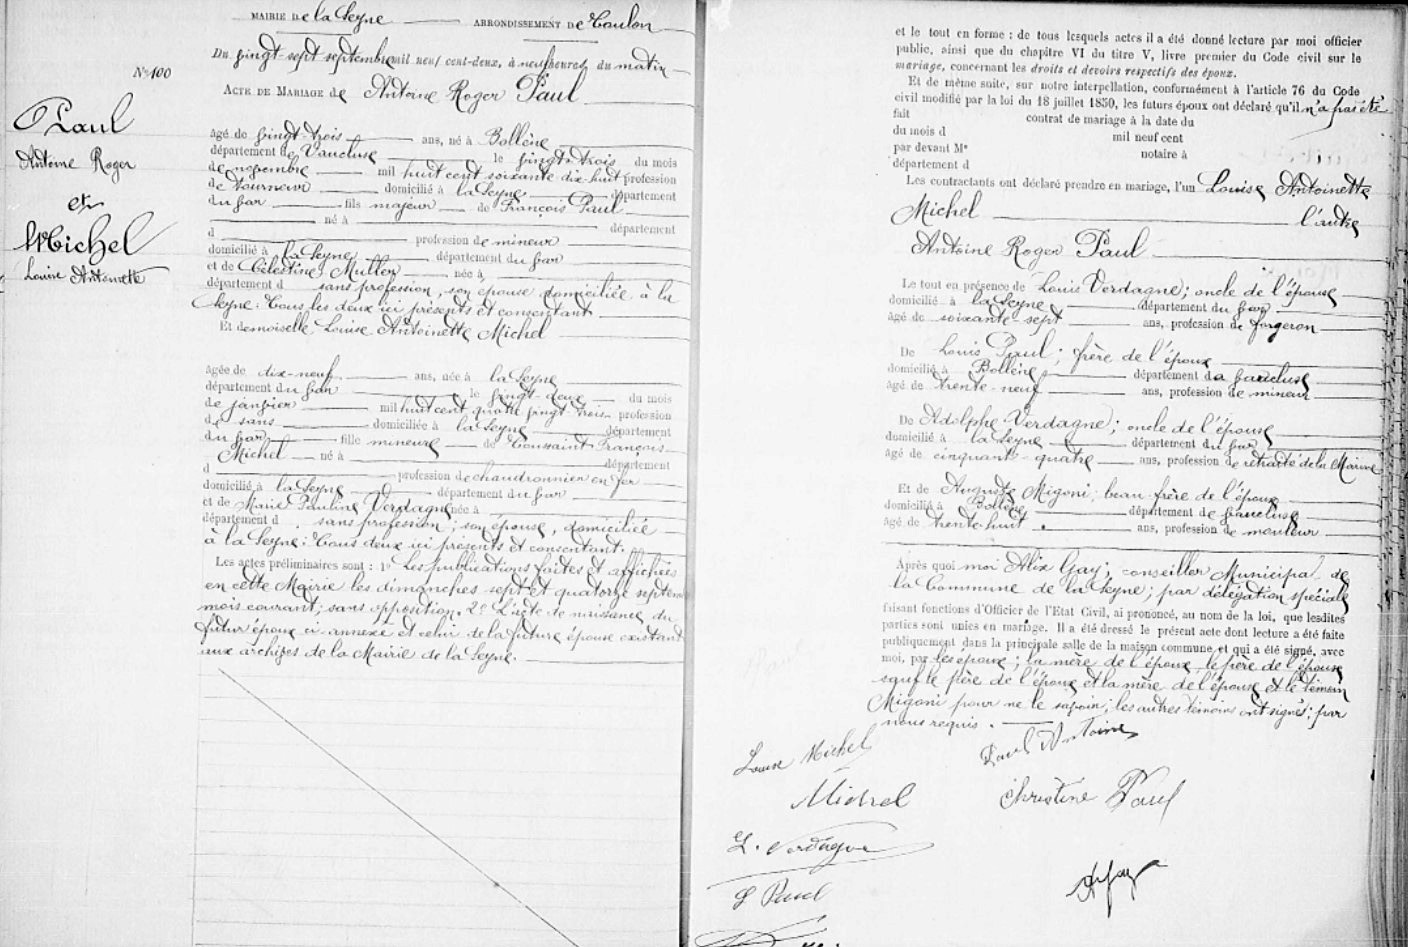 MAIRIE De la Seyne ARRONDISSEMENT De Toulon
N° 100
Du vingt-sept septembre mil neuf cent-deux, à neuf heures du matin
ACTE DE MARIAGE de Antoine Roger Paul
Paul
Antoine Roger
et
Michel
Louise Antoinette
âgé de vingt-trois ans, né à Bollène
département de Vaucluse le vingt-trois du mois
de novembre mil huit cent soixante dix-huit profession
de tourneur domicilié à la Seyne département
du Var fils majeur de François Paul
né à département
d profession de mineur
domicilié à la Seyne département du Var
et de Célestine Muller née à
département d sans profession, son épouse domiciliée à la
Seyne. Tous les deux ici présents et consentant
Et demoiselle Louise Antoinette Michel
âgée de dix-neuf ans, née à la Seyne
département du Var le vingt-deux du mois
de janvier mil huit cent quatre vingt trois profession
de sans domiciliée à la Seyne département
du Var fille mineure de Toussaint François
Michel né à département
d profession de chaudronnier en fer
domicilié à la Seyne département du Var
et de Marie Pauline Verdagne née à
département d sans profession ; son épouse, domiciliée
à la Seyne ; Tous deux ici présents et consentant.
Les actes préliminaires sont : 1° Les publications faites et affichées
en cette Mairie les dimanches sept et quatorze septem
mois courant ; sans opposition. 2° L'acte de naissance du
futur époux ci-annexé et celui de la future épouse existant
aux archives de la Mairie de la Seyne.
et le tout en forme : de tous lesquels actes il a été donné lecture par moi officier
public, ainsi que du chapitre VI du titre V, livre premier du Code civil sur le
mariage, concernant les droits et devoirs respectifs des époux.
Et de même suite, sur notre interpellation, conformément à l'article 76 du Code
civil modifié par la loi du 18 juillet 1850, les futurs époux ont déclaré qu'il n'a pas été
fait contrat de mariage à la date du
du mois d mil neuf cent
par devant Me notaire à
département d
Les contractants ont déclaré prendre en mariage, l'un Louise Antoinette
Michel l'autre
Antoine Roger Paul
Le tout en présence de Louis Verdagne ; oncle de l'épouse
domicilié à la Seyne département du Var
âgé de soixante-sept ans, profession de forgeron
De Louis Paul ; frère de l'époux
domicilié à Bollène département de Vaucluse
âgé de trente-neuf ans, profession de mineur
De Adolphe Verdagne ; oncle de l'épouse
domicilié à la Seyne département du Var
âgé de cinquante-quatre ans, profession de retraité de la Marine
Et de Auguste Migoni ; beau-frère de l'époux
domicilié à Bollène département de Vaucluse
âgé de trente-huit ans, profession de mouleur
Après quoi moi Alix Gay ; conseiller Municipal de
la Commune de la Seyne ; par délégation spéciale
faisant fonctions d'Officier de l'Etat Civil, ai prononcé, au nom de la loi, que lesdites
parties sont unies en mariage. Il a été dressé le présent acte dont lecture a été faite
publiquement dans la principale salle de la maison commune et qui a été signé, avec
moi, par les époux ; la mère de l'époux, le père de l'épouse
sauf le père de l'époux et la mère de l'épouse et le témoin
Migoni pour ne le savoir ; les autres témoins ont signés ; par
nous requis.
Louise Michel Paul Antoine
Michel Christine Paul
L. Verdagne
L Paul AGay